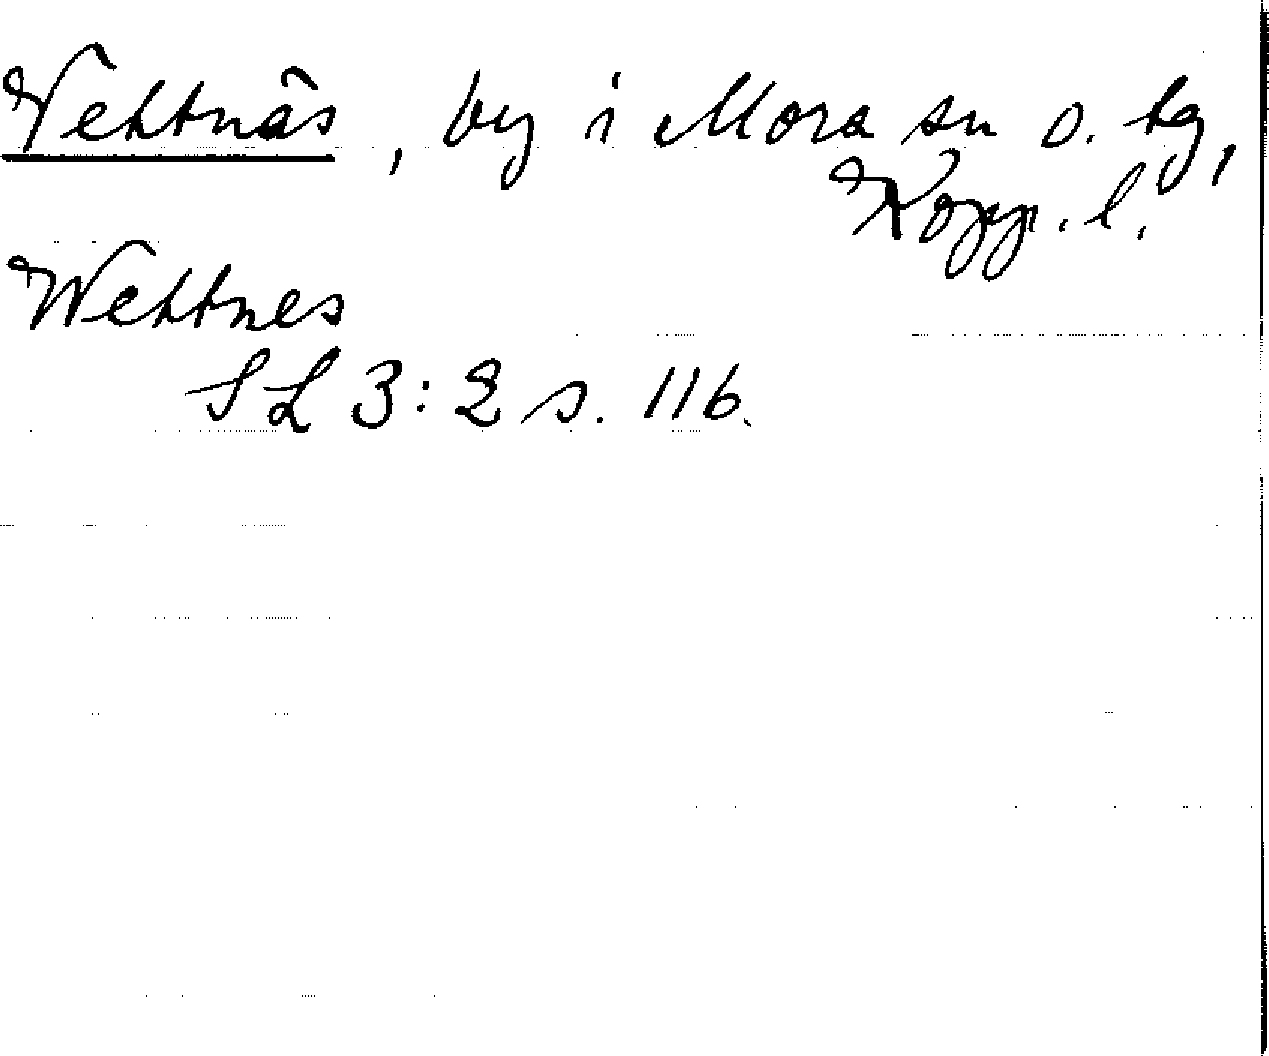 Vettnäs, by i Mora sn o. tg,
Kopp. l.
Wettnes
SL 3:2 s. 116.